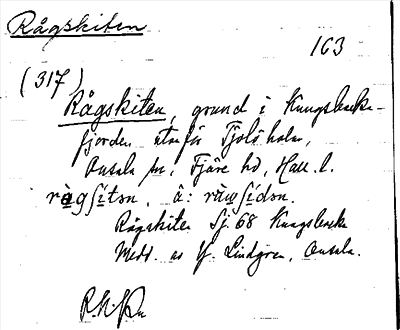 Rågskiten
163
(317)
Rågskiten, grund i Kungsbacka-
fjorden utanför Tjolöholm,
Onsala sn, Fjäre hd, Hall. l.
Rågskiten Sj. 68 Kungsbacka
Medd. av Y. Lindgren, Onsala.